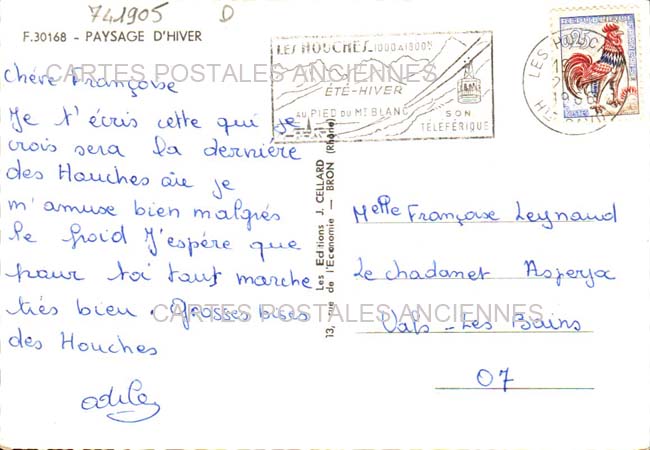 741905 D
F.30168 - PAYSAGE D'HIVER
LES HOUCHES 1000 A 1900m
ÉTÉ-HIVER
AU PIED DU Mt BLANC
SON
TÉLÉFÉRIQUE
LES HOUCHES
Hte
CARTES POSTALES ANCIENNES
Chère Françoise
Je t'écris cette qui je
crois sera la dernière
des Houches où je
m'amuse bien malgrés
le froid J'espère que
pour toi tout marche
très bien. Grosses bises
des Houches
Les Editions J. CELLARD
13, rue de l'Economie — BRON (Rhône)
Melle Françoise Leynaud
Le chadanet Asperjx
CARTES POSTALES ANCIENNES
Vals-Les Bains
07